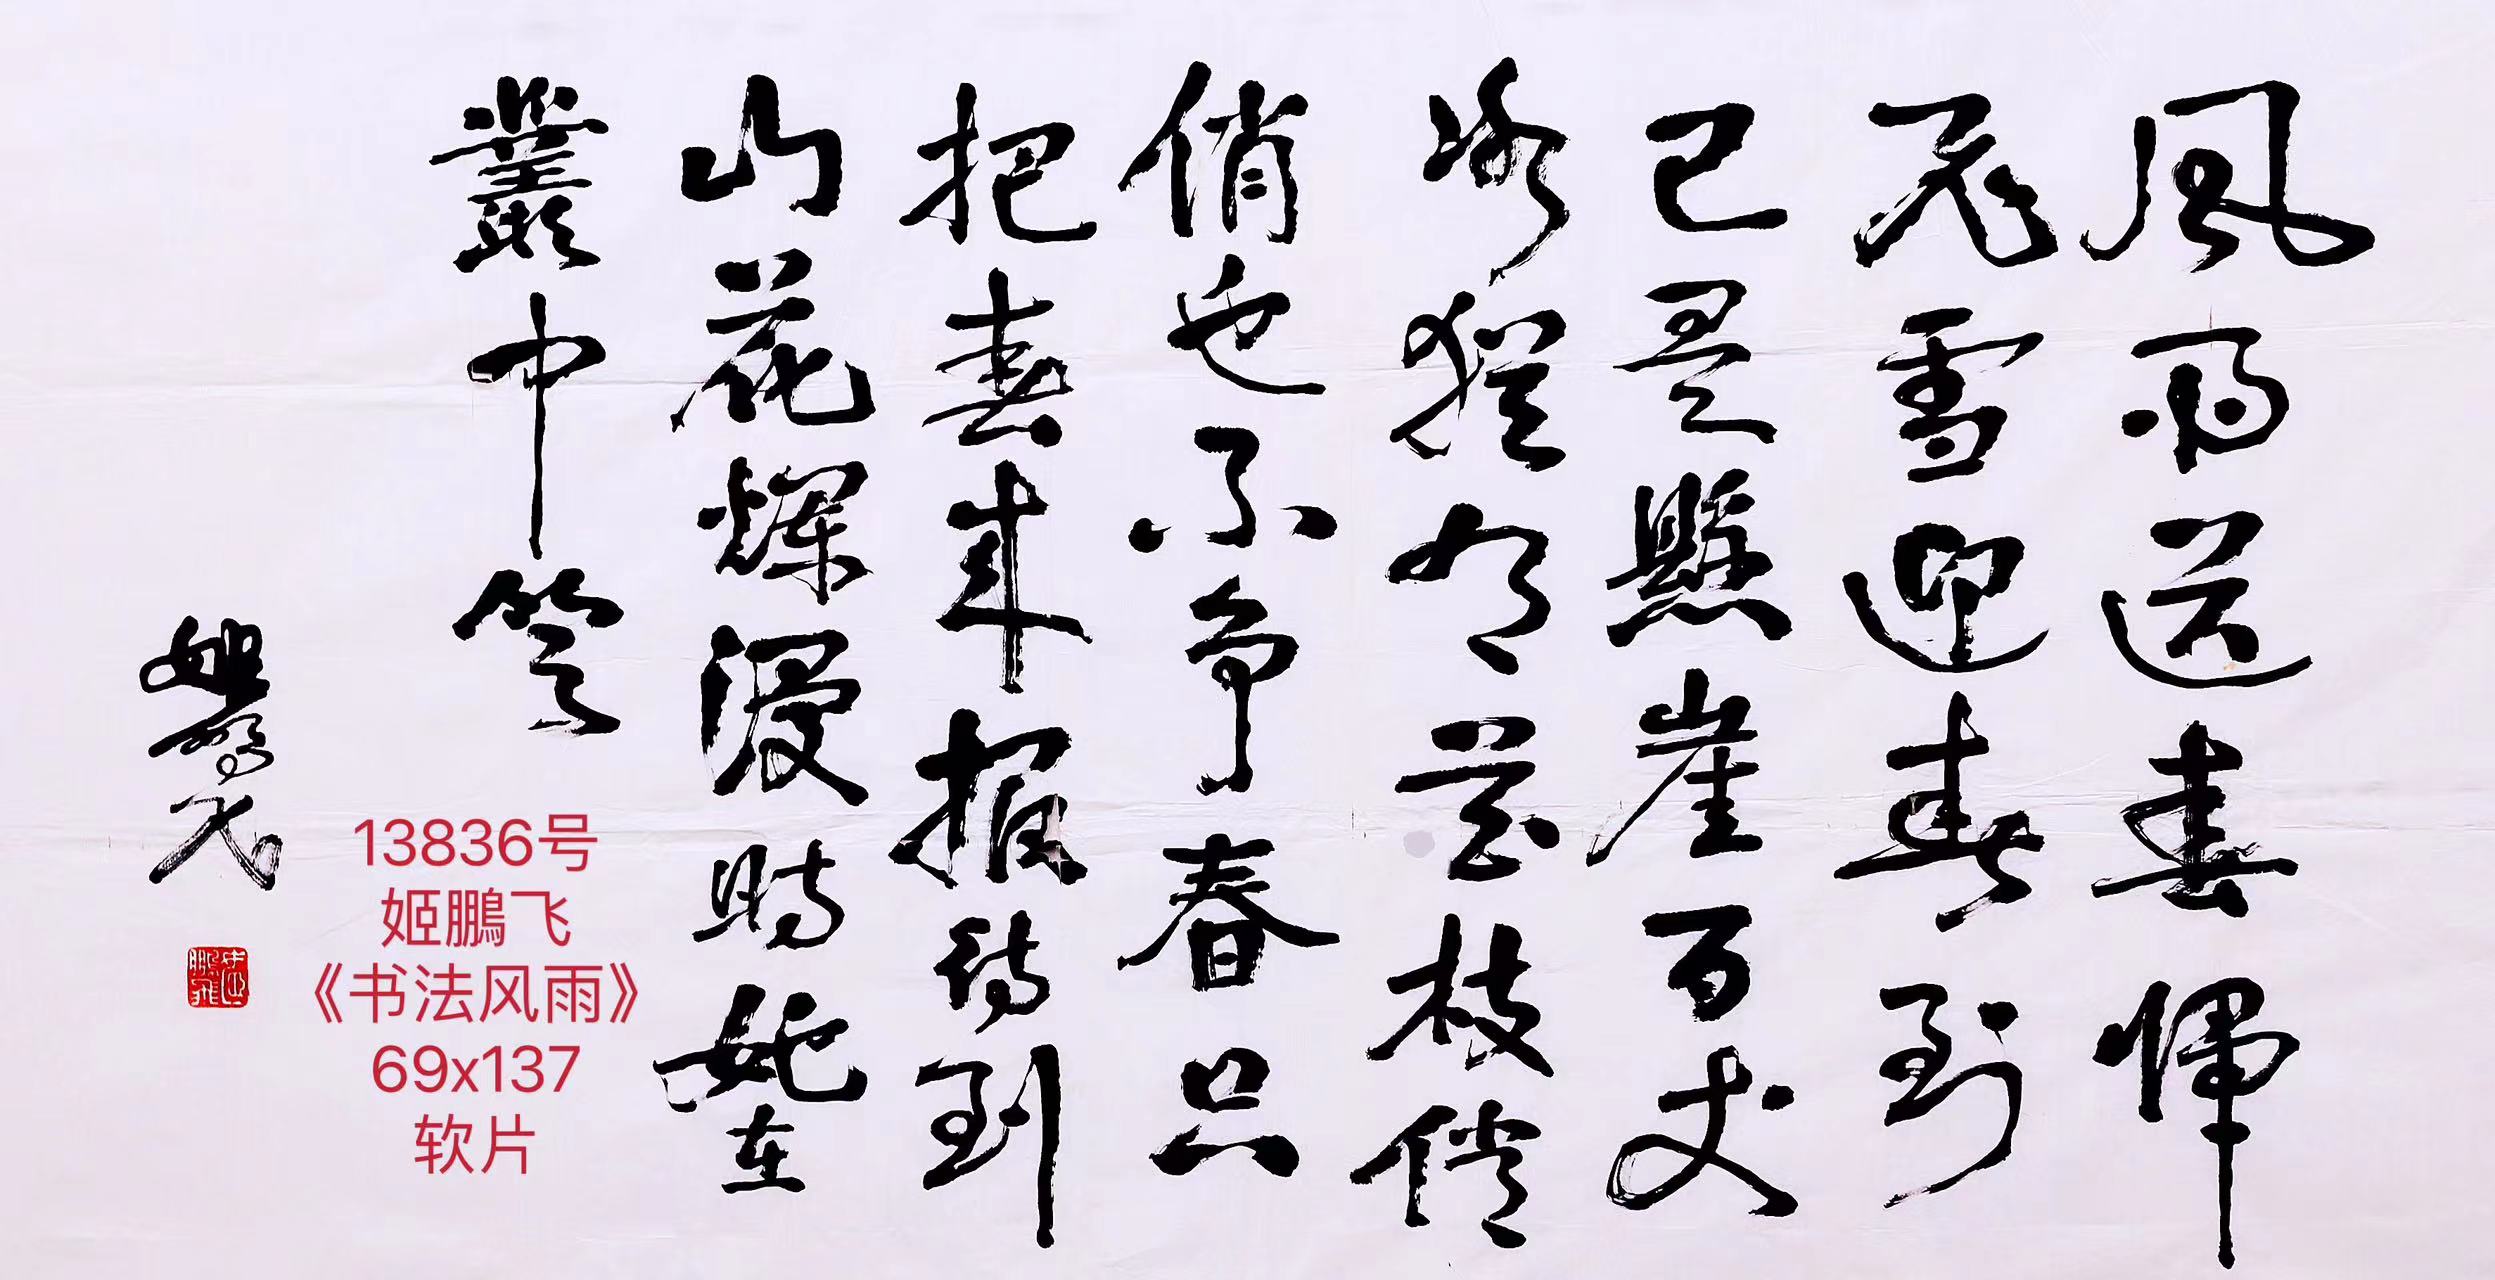 風雨送春歸
飛雪迎春到
已是懸崖百丈
冰猶有花枝俏
俏也不争春只
把春来报待到
山花爛漫时她在
叢中笑
姬鵬飞
13836号
姬鵬飞
《书法风雨》
69x137
软片